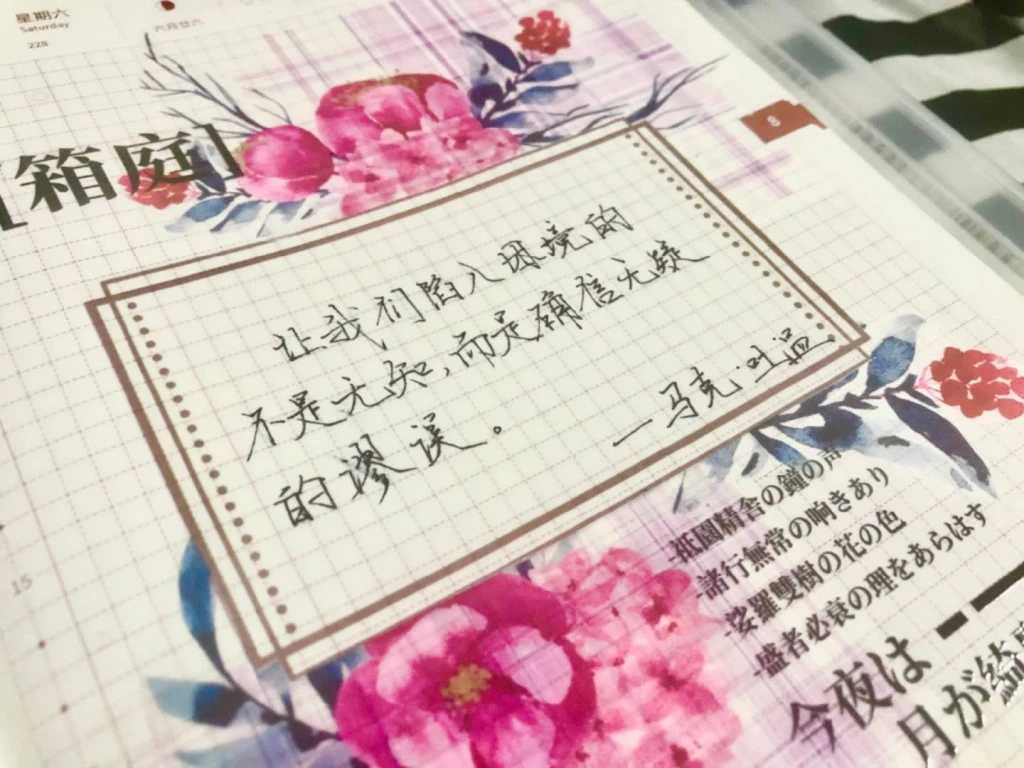 星期六
Saturday
228
六月廿六
8
[箱庭]
让我们陷入困境的
不是无知，而是确信无疑
的谬误。
—马克·吐温
15
祇園精舎の鐘の声
諸行無常の响きあり
娑羅雙樹の花の色
盛者必衰の理をあらはす
今夜は
月が綺